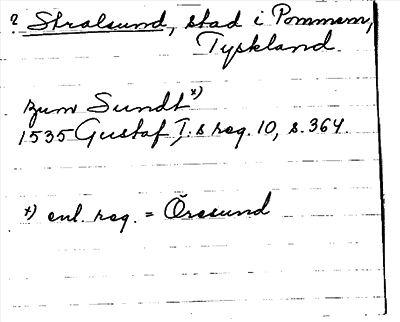 ? Stralsund, stad i Pommern,
Tyskland.
zum Sundt *)
1535 Gustaf I:s reg. 10, s. 364.
*) enl. reg. = Öresund